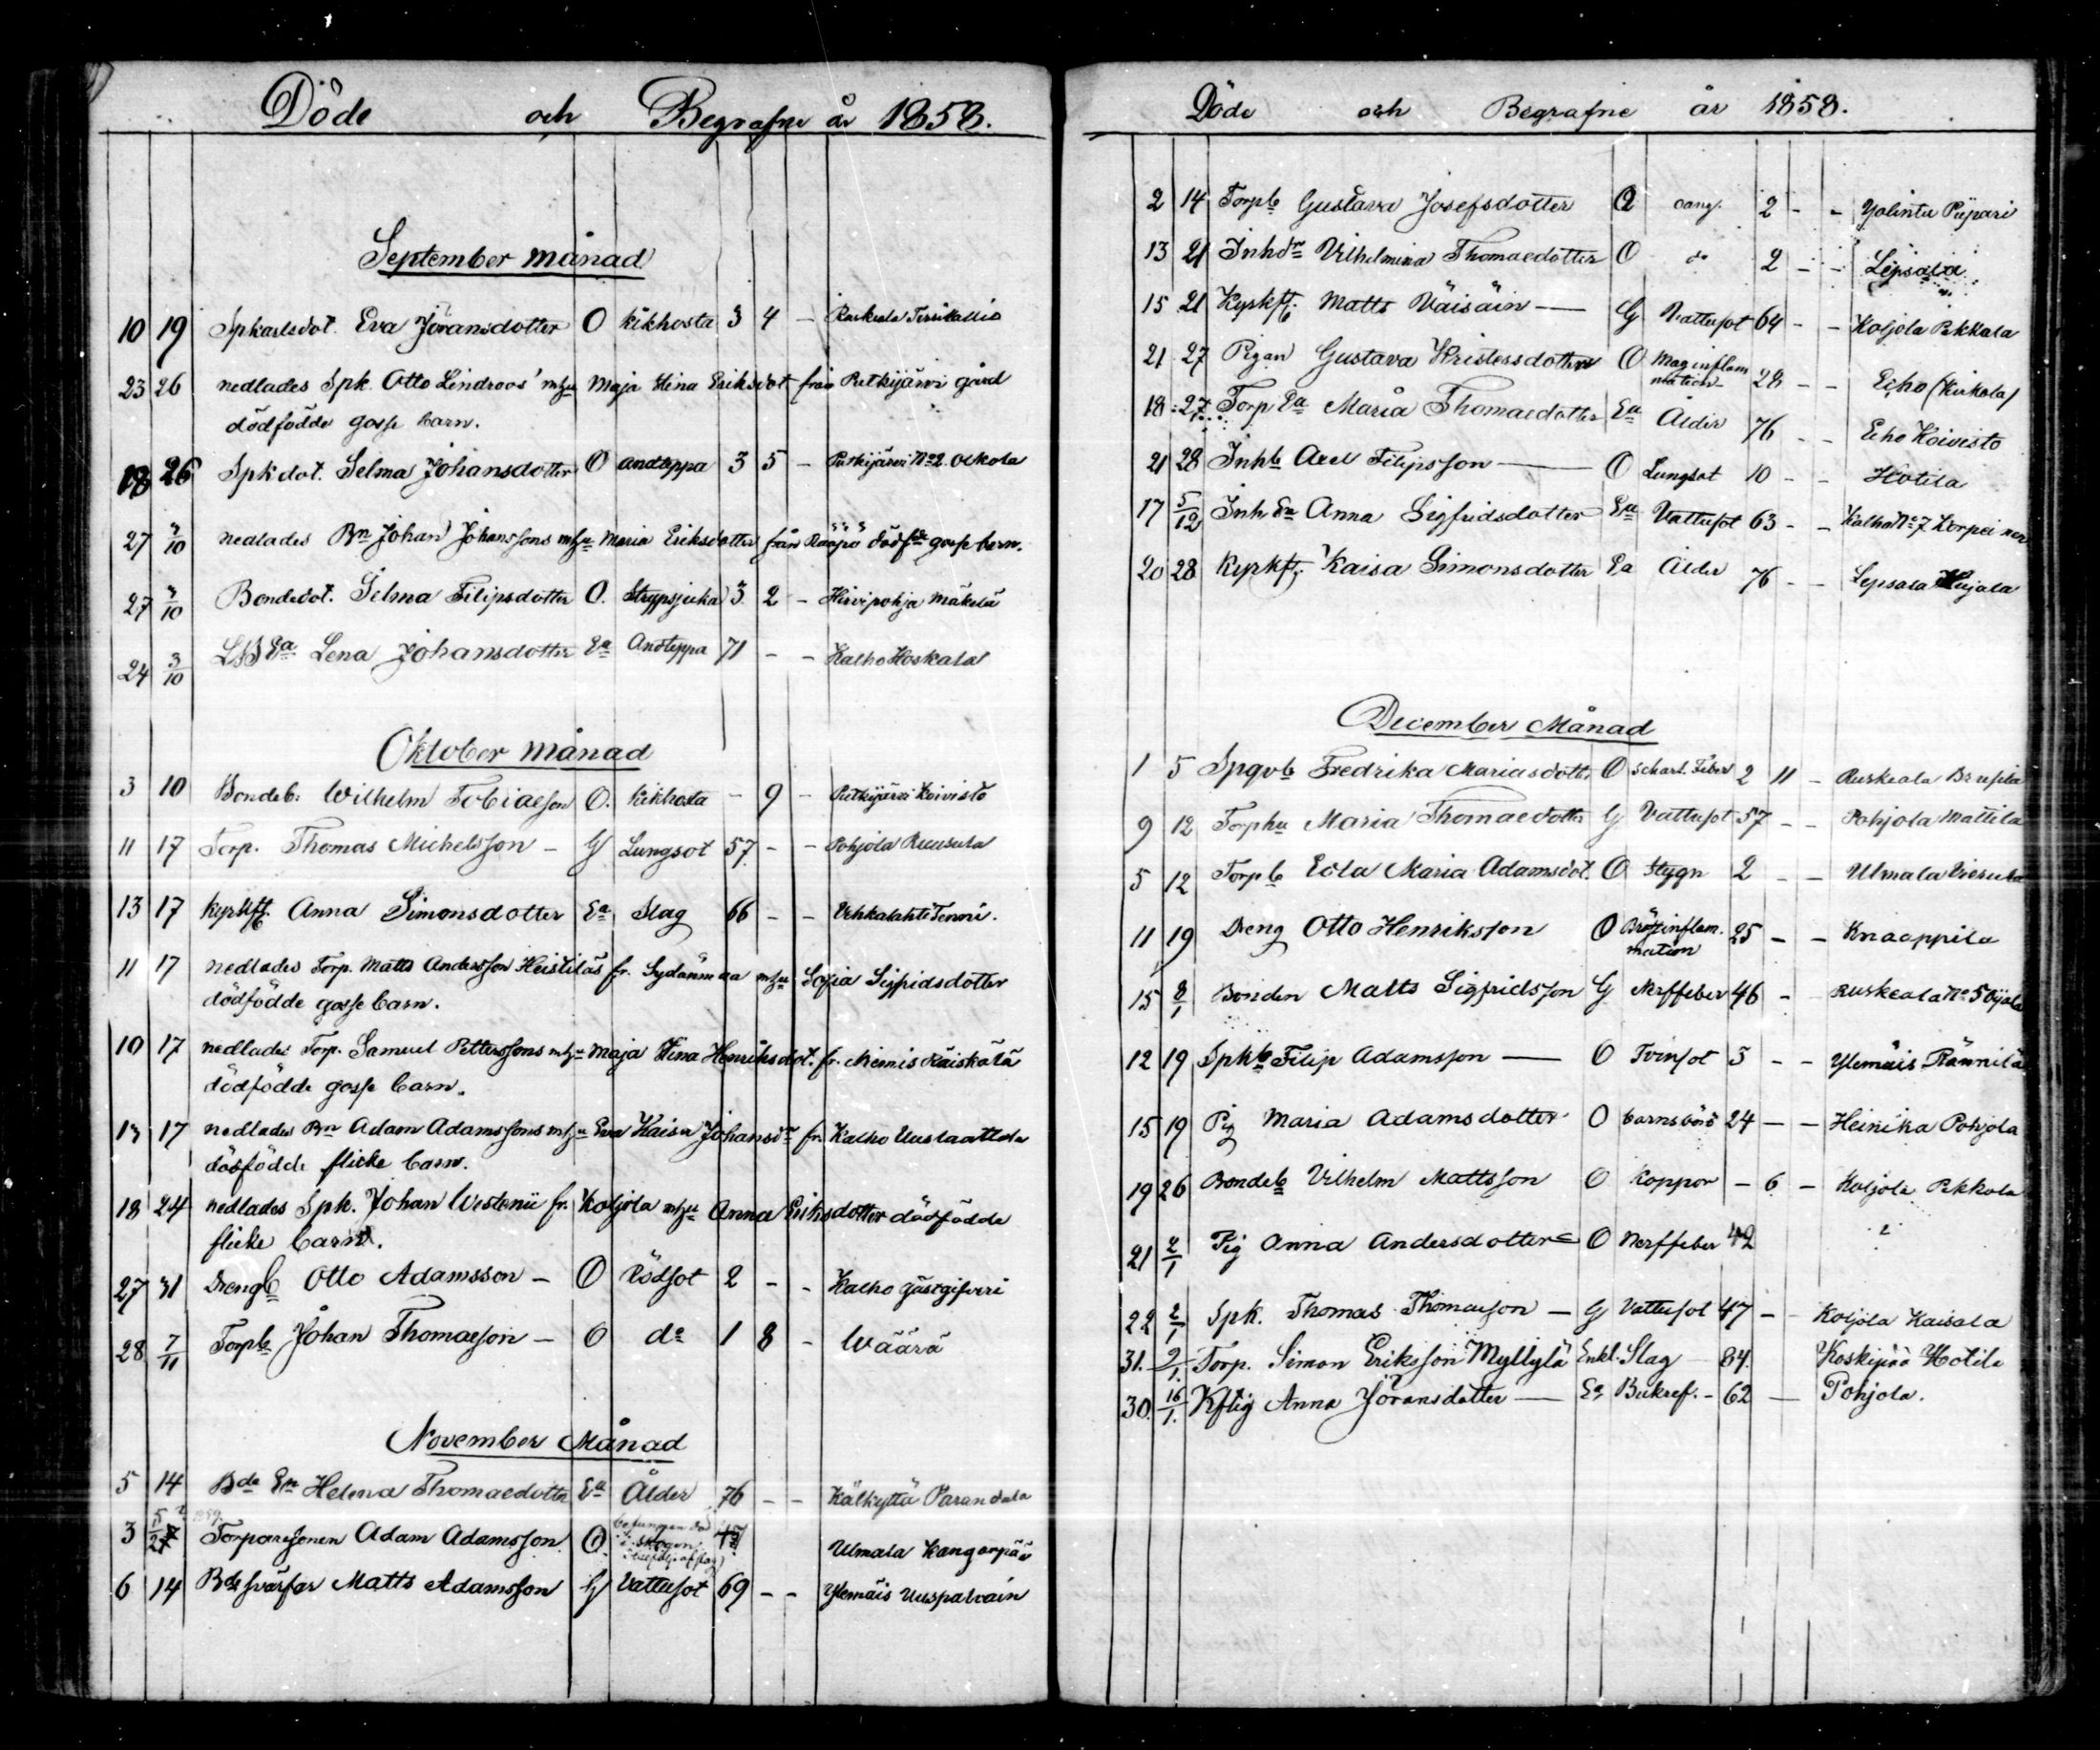 Döde och Begrafne år 1858.
September månad
10 19 Spkarlsdot. Eva Jöransdotter O kikhosta 3 4 - Ruskeala Terrikallio
23 26 nedlades Spk. Otto Lindroos' mhu Maja Stina Eriksdot från Putkijärvi gård
dödfödde gosse barn.
18 26 Spkdot. Selma Johansdotter O andtäppa 3 5 - Putkijärvi No 2 Ockola
27 3/10 nedlades Bn Johan Johanssons mhu Maria Eriksdotter från Rääpö dödfde gosse barn.
27 3/10 Bondedot. Selma Filipsdotter O. Strypsjuka 3 2 - Hirvipohja Mäkelä
24 3/10 Ea Lena Johansdotter Ea Andtäppa 71 - - Kalho Koskala
Oktober månad
3 10 Bondeb. Wilhelm Tobiaeson O. kikhosta - 9 - Putkijärvi Koivisto
11 17 Torp. Thomas Michelsson - G Lungsot 57 - - Pohjola Ruusula
13 17 Kyrkft. Anna Simonsdotter Ea Slag 66 - - Vehkalahti Tenni.
11 17 nedlades Torp. Matts Andersson Heistiläs fr. Sydänmaa mhu Sofia Sigfridsdotter
dödfödde gosse barn.
10 17 nedlades Torp. Samuel Petterssons mhu Maja Stina Henriksdot. fr. Niemis Räiskälä
dödfödde gosse barn.
13 17 nedlades Bn Adam Adamssons mhu Eva Kaisa Johansdr fr. Kalho Uustaattola
dödfödde flicke barn.
18 24 nedlades Spk. Johan Westenii fr. Koljola mhu Anna Eriksdotter dödfödde
flicke barn.
27 31 Drengb Otto Adamsson - O Rödsot 2 - - Kalho gästgifveri
28 7/11 Torpb Johan Thomaeson - O do 1 8 - Wäärä
November Månad
5 14 Bde En Helena Thomaedotter Ea Ålder 76 - - Kälkyttä Parandala
3 5/2 1859. Torparesonen Adam Adamsson O befunnen död i skogen 47 Ulmala Kangarpää
6 14 Bde svärfar Matts Adamsson G Vattusot 69 - - Ylemäis Uuspalvain
Döde och Begrafne år 1858.
2 14 Torpb Gustava Josefsdotter O oang. 2 - - Yolintu Piipari
13 21 Inhdr Vilhelmina Thomaedotter O do 2 - - Lepsala
15 21 Kyrkft. Matts Väisäin - G Vattusot 64 - - Koljola Pekkala
21 27 Pigan Gustava Kristersdotter O Maginflammation 28 - - Echo (Kukola)
18 27 Torp Ea Maria Thomaedotter Ea Ålder 76 - - Echo Koivisto
21 28 Inhb Axel Filipsson - O Lungsot 10 - - Hotila
17 5/12 Inh Ea Anna Sigfridsdotter Ea Vattusot 63 - - Kalho No 7 Korpeinen
20 28 Kyrkftj. Kaisa Simonsdotter Ea Ålder 76 - - Lepsala Kujala
December Månad
1 5 Spgvb Fredrika Mariasdotter O Scharl. Feber 2 11 - Ruskeala Brusila
9 12 Torphu Maria Thomaedotter G Vattusot 57 - - Pohjola Mattila
5 12 Torpb Eola Maria Adamsdot. O Stygn 2 - - Ulmala Vierula
11 19 Dreng Otto Henriksson O Bröstinflammation 25 - - Knaappila
15 8/1 Bonden Matts Sigfridsson G Nerffeber 46 - Ruskeala No 5 Ojala
12 19 Spkb Filip Adamsson - O Tvinsot 5 - - Ylemäis Rännilä
15 19 Pig Maria Adamsdotter O barnsbörd 24 - - Heinika Pohjola
19 26 Bondeb Vilhelm Mattsson O Koppor - 6 - Koljola Pekkola
21 2/1 Pig Anna Andersdotter O Nerffeber 42 ?
22 2/1 Spk. Thomas Thomaeson - G Vattusot 47 - Koljola Kaisala
31. 9/1. Torp. Simon Eriksson Myllylä Enkl. Slag 84. Koskipää Hotila
30. 16/1. Kftig Anna Jöransdotter - Ea Bukref. - 62 - Pohjola.